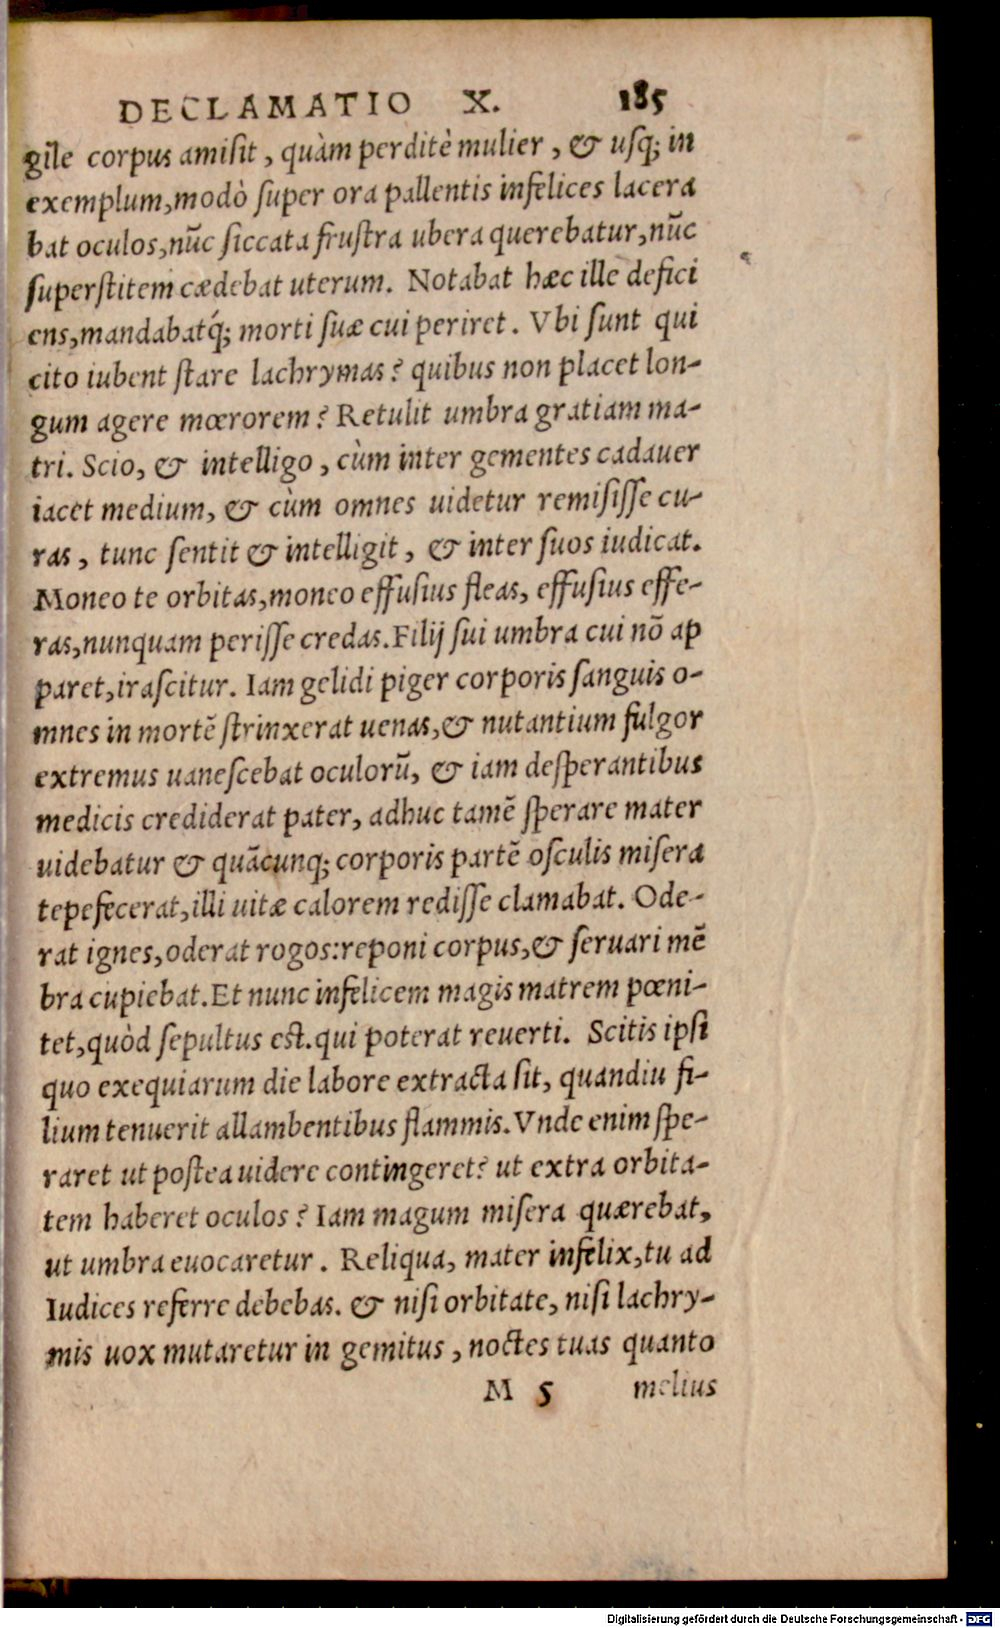 DECLAMATIO X. 185
gile corpus amisit, quàm perditè mulier, & usq; in
exemplum, modò super ora pallentis infelices lacera
bat oculos, nūc siccata frustra ubera querebatur, nūc
superstitem cædebat uterum. Notabat hæc ille defici
ens, mandabatq́; morti suæ cui periret. Vbi sunt qui
cito iubent stare lachrymas? quibus non placet lon-
gum agere mœrorem? Retulit umbra gratiam ma-
tri. Scio, & intelligo, cùm inter gementes cadauer
iacet medium, & cùm omnes uidetur remisisse cu-
ras, tunc sentit & intelligit, & inter suos iudicat.
Moneo te orbitas, moneo effusius fleas, effusius effe-
ras, nunquam perisse credas. Filij sui umbra cui nō ap
paret, irascitur. Iam gelidi piger corporis sanguis o-
mnes in mortē strinxerat uenas, & nutantium fulgor
extremus uanescebat oculorū, & iam desperantibus
medicis crediderat pater, adhuc tamē sperare mater
uidebatur & quācunq; corporis partē osculis misera
tepefecerat, illi uitæ calorem redisse clamabat. Ode-
rat ignes, oderat rogos: reponi corpus, & seruari mē
bra cupiebat. Et nunc infelicem magis matrem pœni-
tet, quòd sepultus est. qui poterat reuerti. Scitis ipsi
quo exequiarum die labore extracta sit, quandiu fi-
lium tenuerit allambentibus flammis. Vnde enim spe-
raret ut postea uidere contingeret? ut extra orbita-
tem haberet oculos? Iam magum misera quærebat,
ut umbra euocaretur. Reliqua, mater infelix, tu ad
Iudices referre debebas. & nisi orbitate, nisi lachry-
mis uox mutaretur in gemitus, noctes tuas quanto
M 5 melius
Digitalisierung gefördert durch die Deutsche Forschungsgemeinschaft - DFG